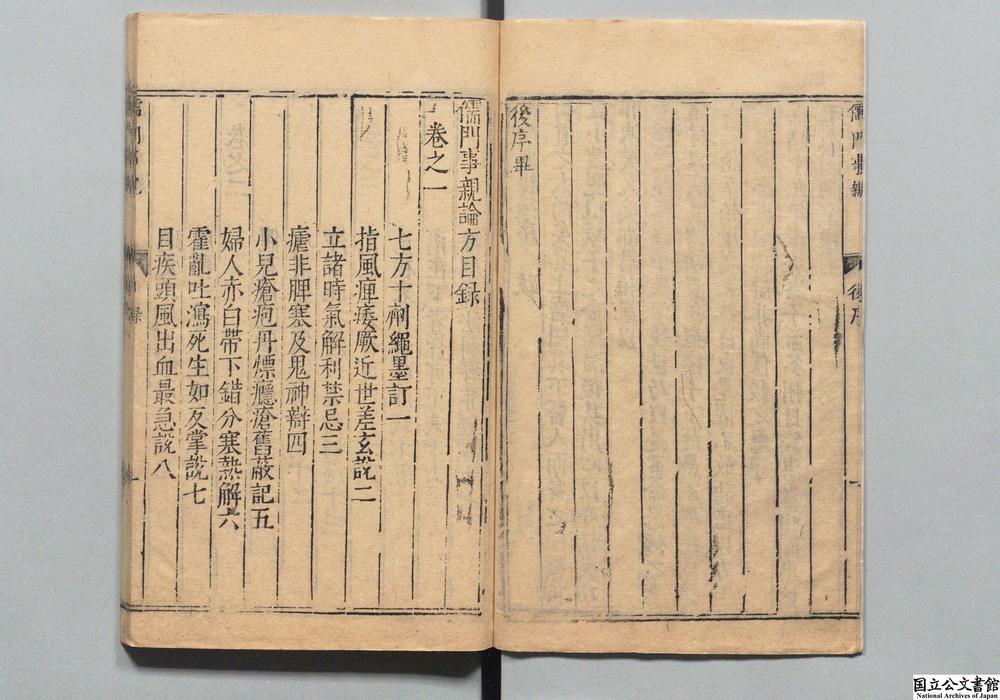 儒門事親
後序
後序畢
儒門事親論方目録
卷之一
七方十劑繩墨訂一
指風痺痿厥近世差玄說二
立諸時氣解利禁忌三
瘧非脾寒及鬼神辯四
小兒瘡疱丹熛癮瘡舊蔽記五
婦人赤白帶下錯分寒熱解六
霍亂吐瀉死生如反掌說七
目疾頭風出血最急說八
国立公文書館
National Archives of Japan